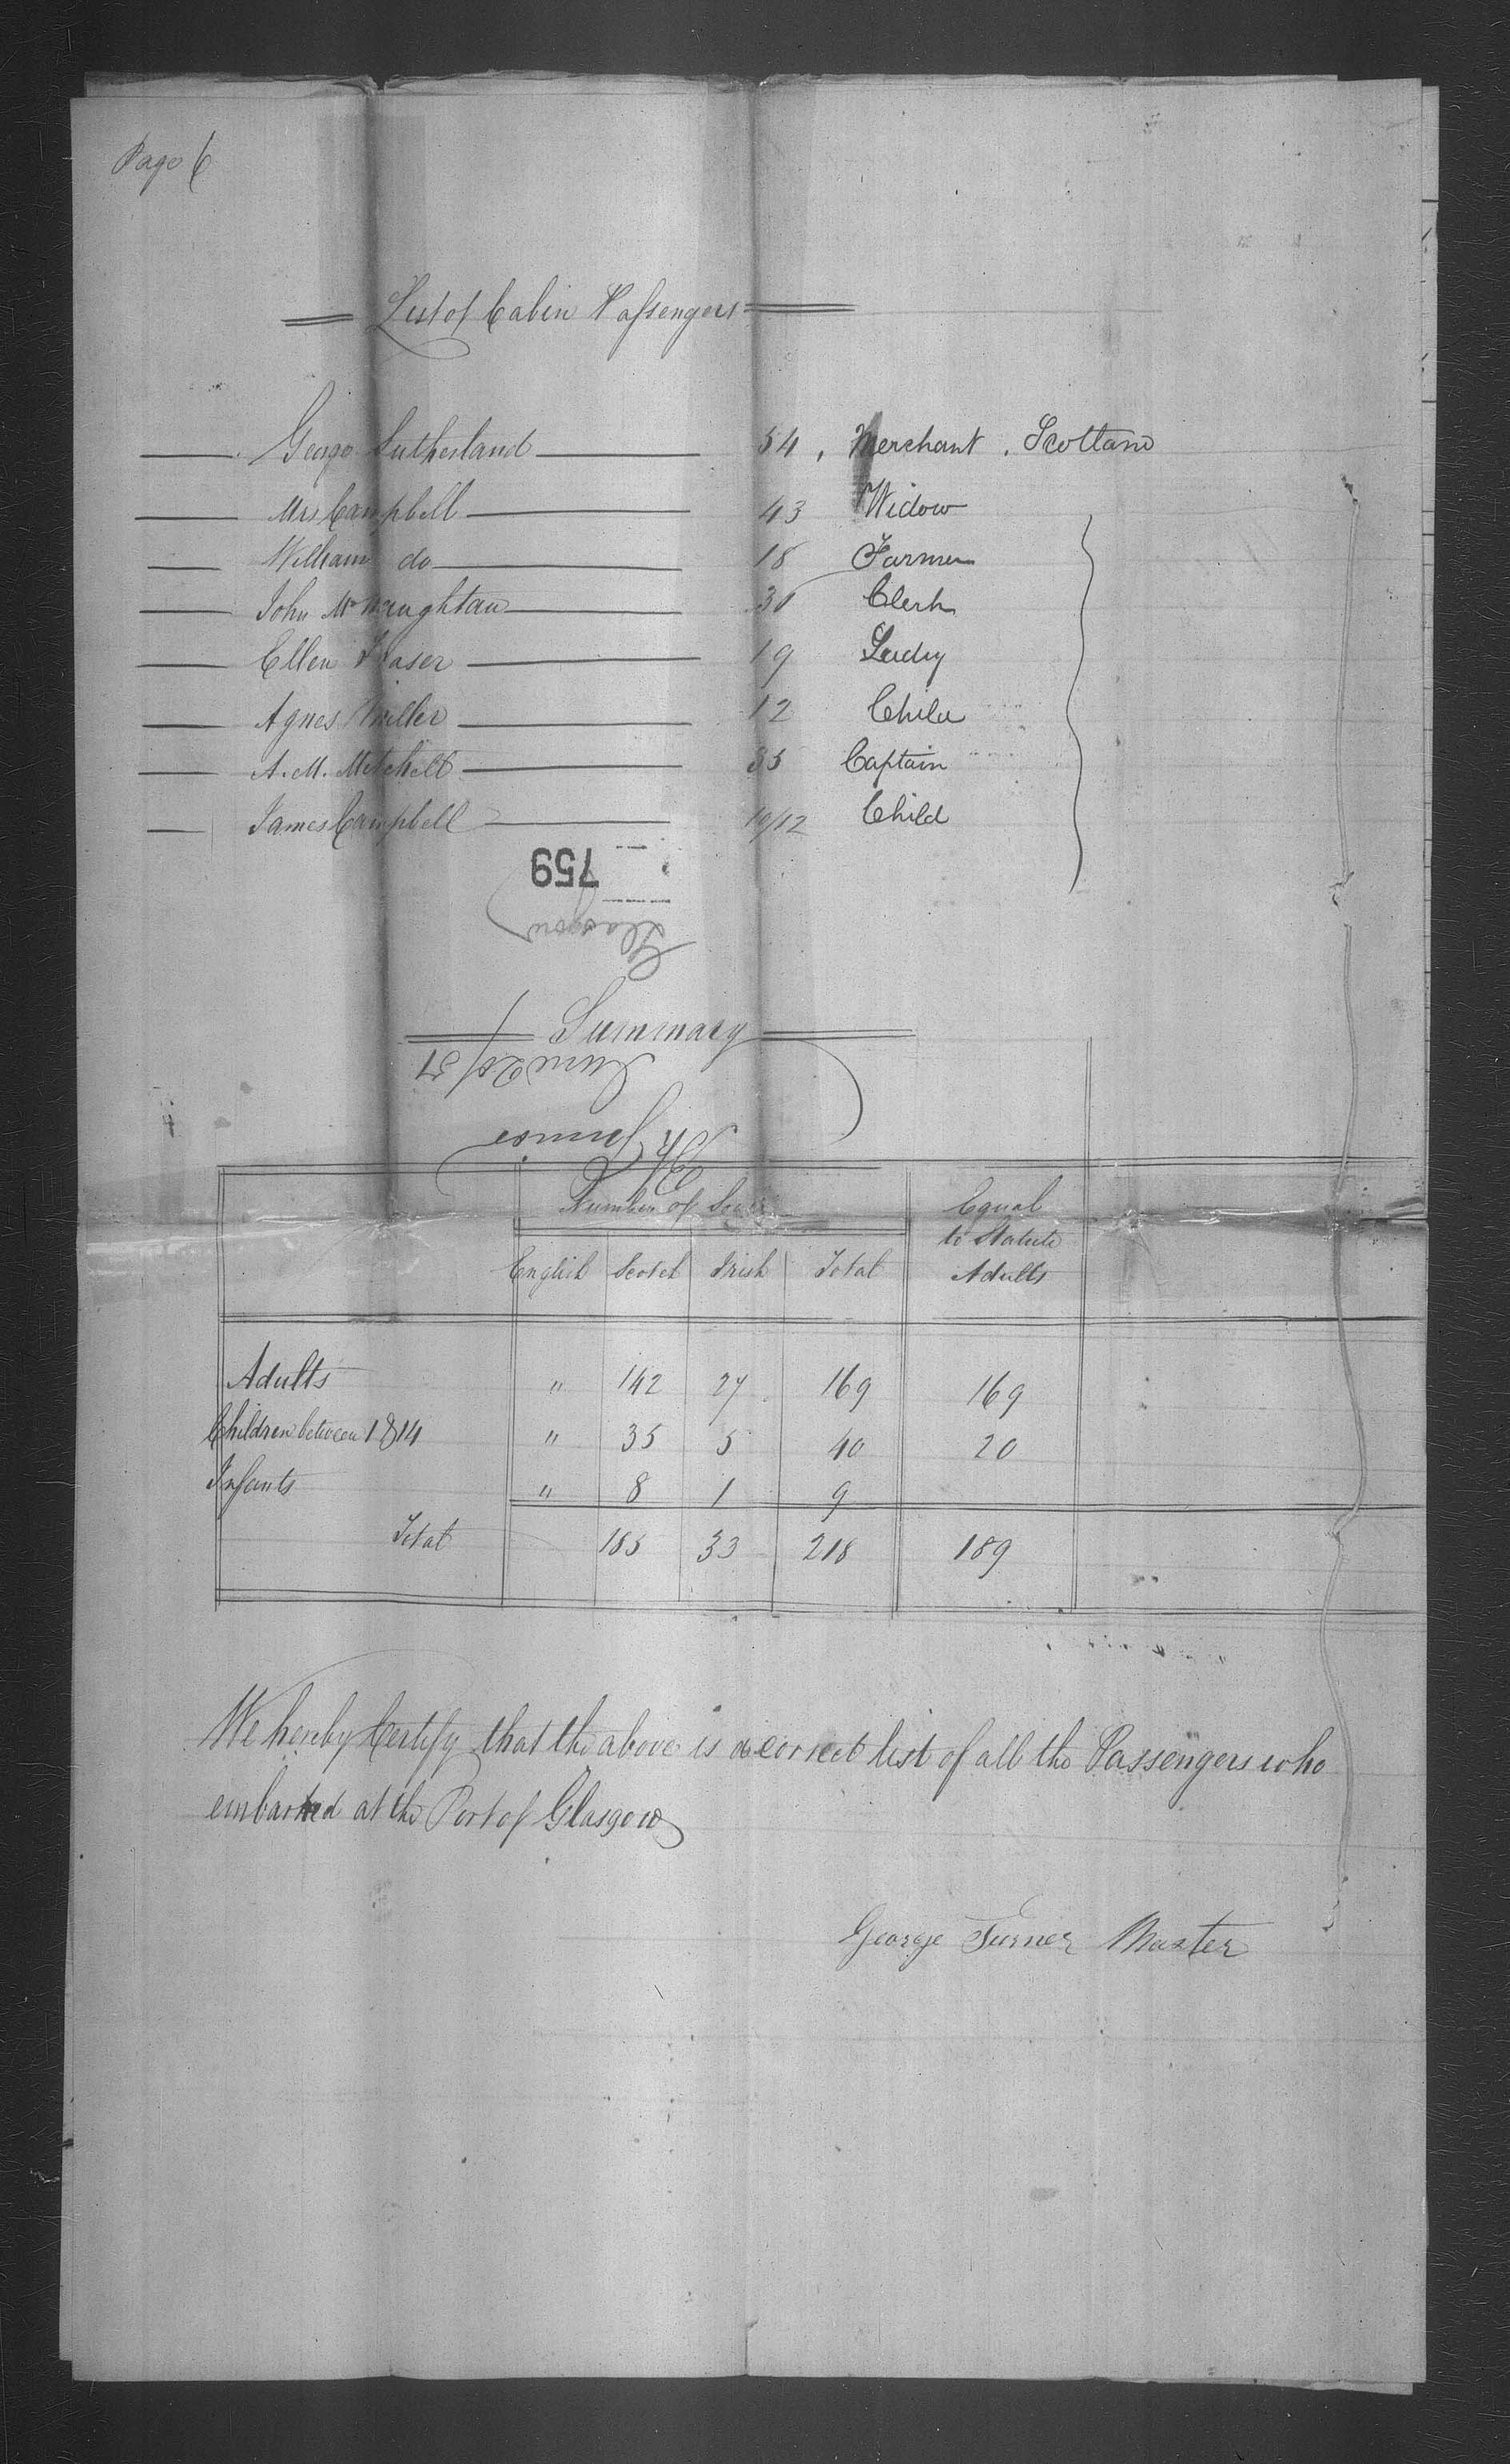 Page 6
List of Cabin Passengers
George Sutherland 54 , Merchant . Scotland
Mrs Campbell 43 Widow
William do 18 Farmer
John McNaughtan 30 Clerk
Ellen Fraser 19 Lady
Agnes Miller 12 Child
A. M. Mitchell 35 Captain
James Campbell 10/12 Child
759
Glasgow
Summary
June 20/57
Number of Souls
Equal to Statute Adults
English Scotch Irish Total
Adults " 142 27 169 169
Children between 1 & 14 " 35 5 40 20
Infants " 8 1 9
Total 185 33 218 189
We hereby Certify that the above is a correct list of all the Passengers who
embarked at the Port of Glasgow
George Turner Master